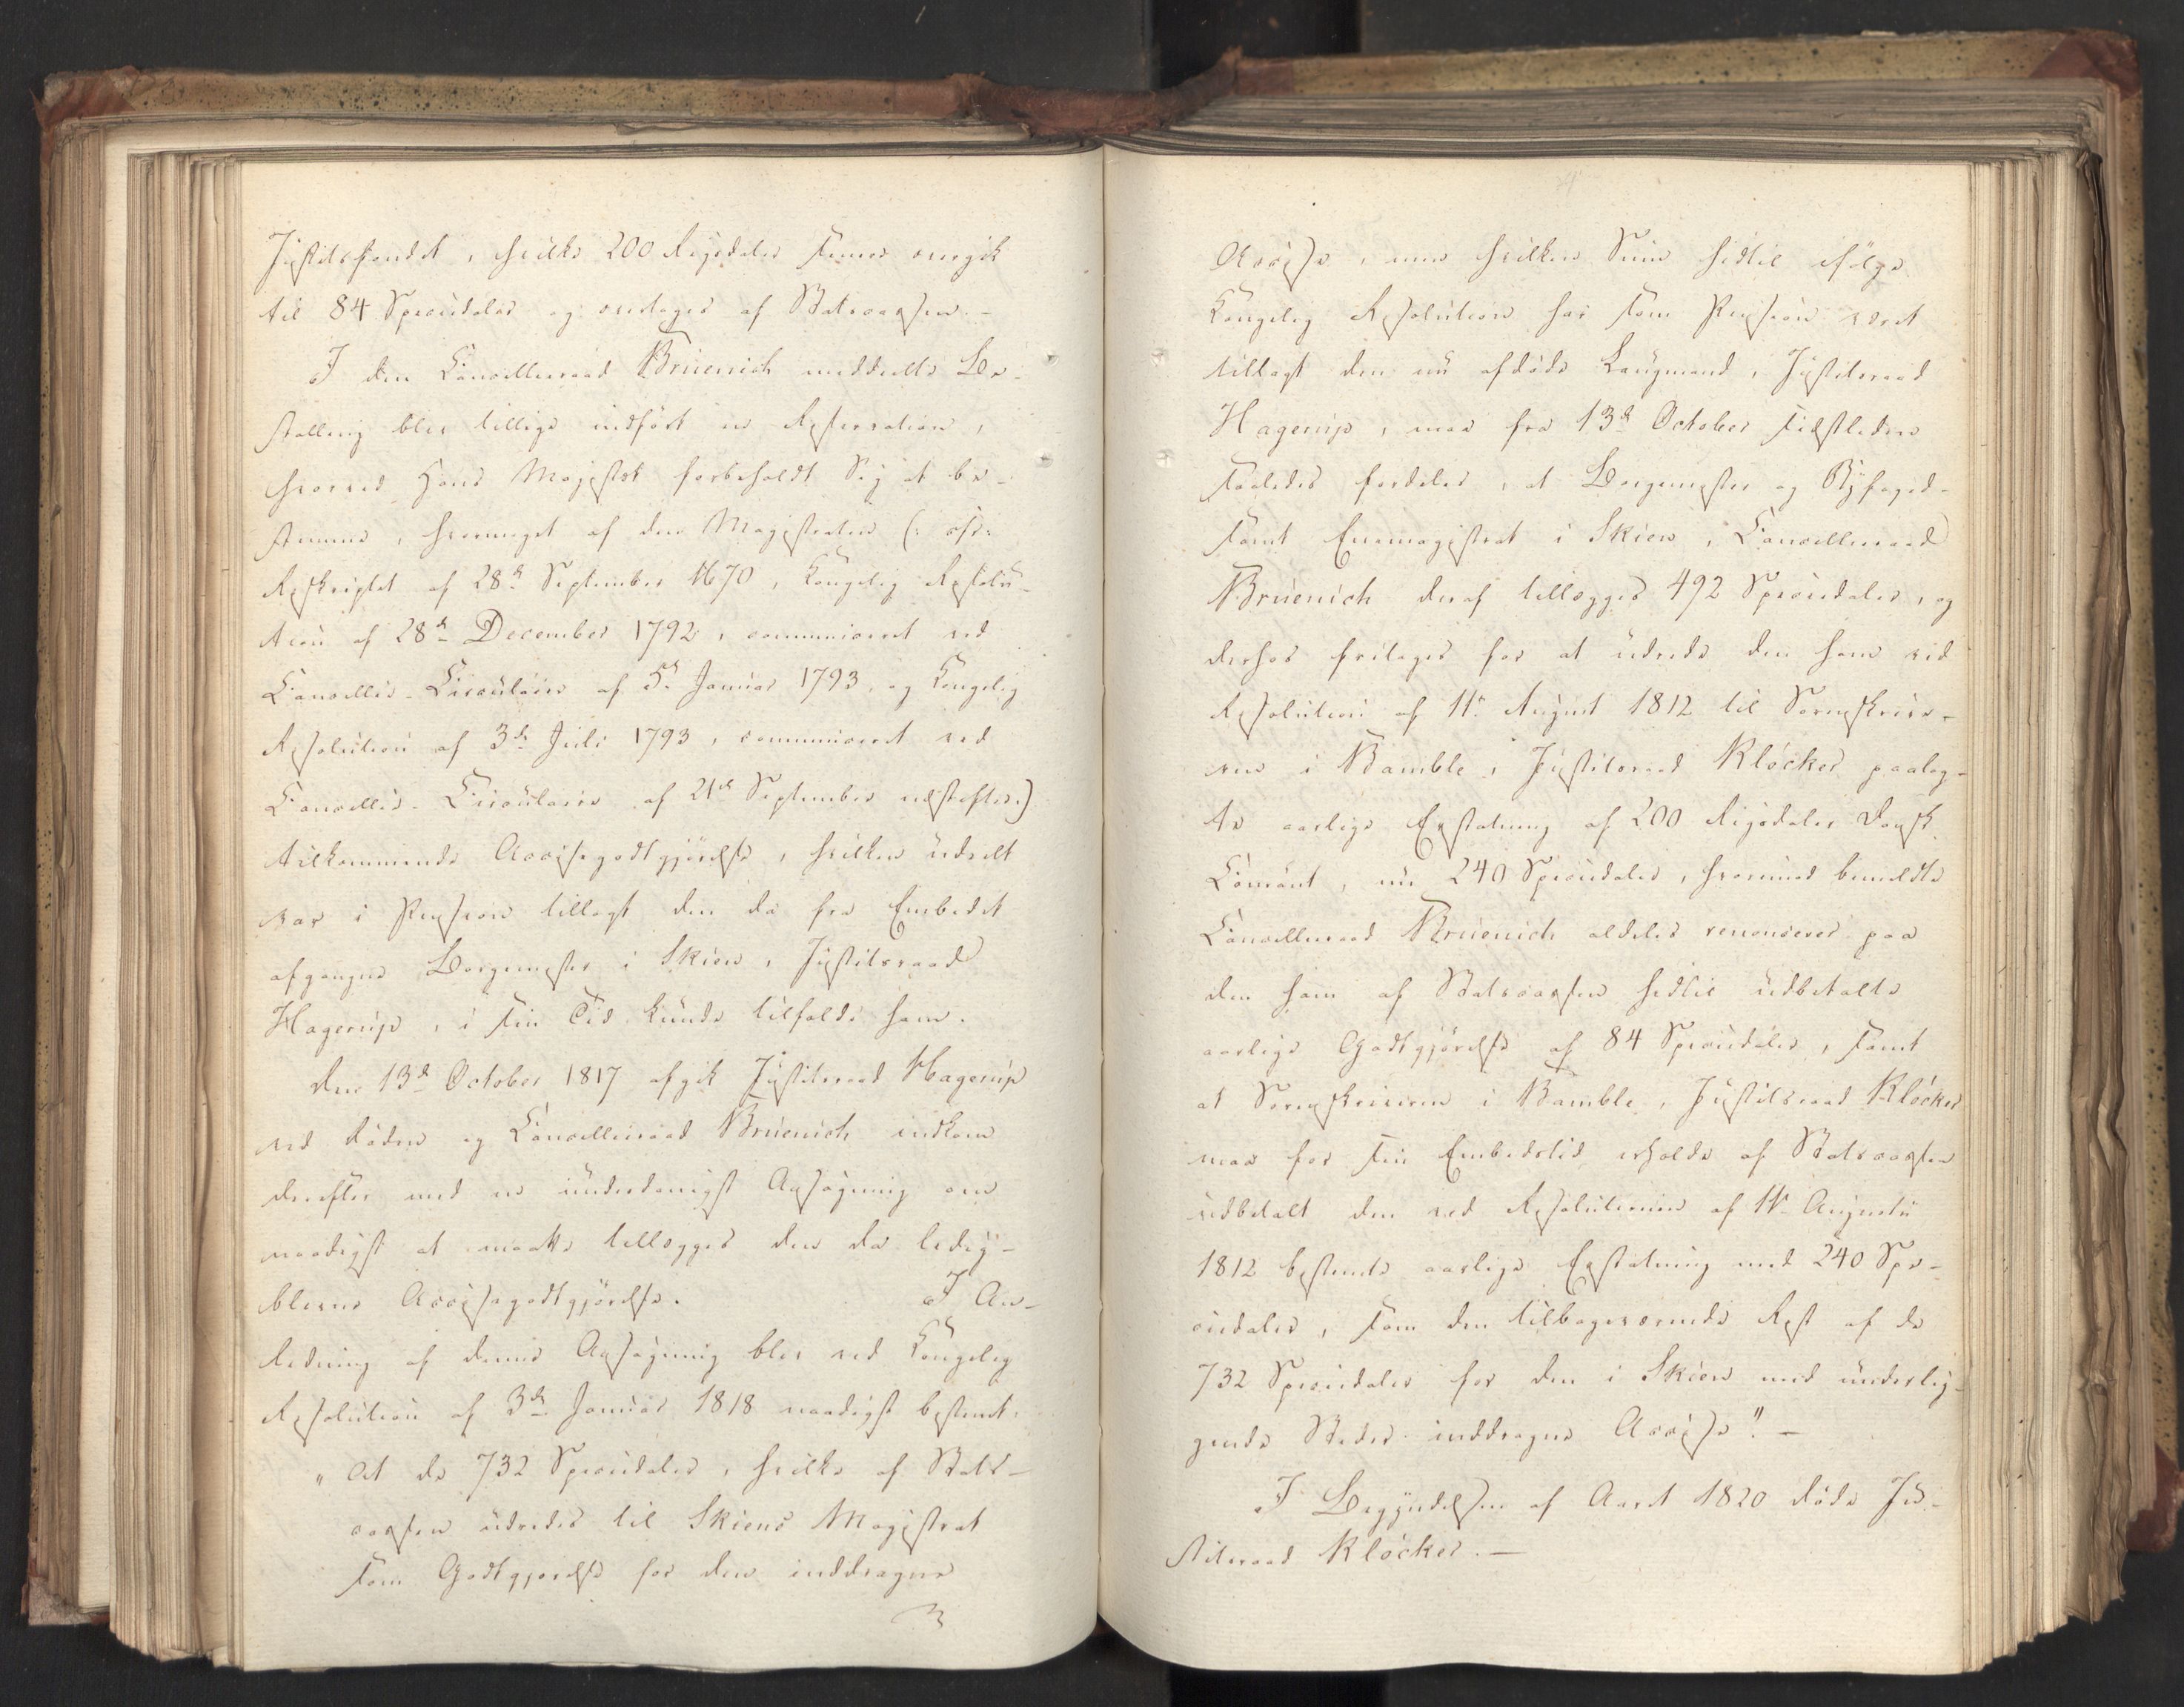 Justitsfondet, hvilke 200 Rigsdaler senere overgik
til 84 Speciedaler og overtages af Statscassen. -
I den Cancelliraad Brüenich meddeelte Be-
stalling blev tillige indført en Reservation,
hvorved Hans Majestæt forbeholdt Sig at be-
stemme, hvormeget af den Magistraten (: cfr:
Reskriptet af 28de September 1670, Kongelig Resolu-
tion af 28de December 1792, communiceret ved
Cancellie-Circulaire af 5te Januar 1793, og Kongelig
Resolution af 3de Juli 1793, communiceret ved
Cancellie-Circulaire af 21de September næstefter:)
tilkommende Accisegodtgjørelse, hvilken udeelt
var i Pension tillagt den da fra Embedet
afgangne Borgemester i Skien, Justitsraad
Hagerup, i sin Tid kunde tilfalde ham.
Den 13de October 1817 afgik Justitsraad Hagerup
ved Døden og Cancelliraad Brüenich indkom
derefter med en underdanigst Ansøgning om
naadigst at maatte tillægges den da ledig-
blevne Accisegodtgjørelse. I An-
ledning af denne Ansøgning blev ved Kongelig
Resolution af 3de Januar 1818 naadigst bestemt:
"At de 732 Speciedaler, hvilke af Stats-
cassen udredes til Skiens Magistrat
som Godtgjorelse for den inddragne
Accise, men hvilken Sum hidtil ifølge
Kongelig Resolution har som Pension været
tillagt den nu afdøde Laugmand, Justitsraad
Hagerup, maa fra 13de October sidstleden
saaledes fordeles, at Borgemester og Byfoged
samt Enemagistrat i Skien, Cancelliraad
Brüenich deraf tillægges 492 Speciedaler, og
derhos fritages for at udrede den ham ved
Resolution af 11te August 1812 til Sorenskrive-
ren i Bamble, Justitsraad Kløcker paalag-
te aarlige Erstatning af 200 Rigsdaler Dansk
Courant, nu 240 Speciedaler, hvorimod bemeldte
Cancelliraad Brüenich aldeles renoncerer paa
den ham af Statscassen hidtil udbetalte
aarlige Godtgjørelse af 84 Speciedaler, samt
at Sorenskriveren i Bamble, Justitsraad Kløcker
maa for sin Embedstid erholde af Statscassen
udbetalt den ved Resolutionen af 11te Augusti
1812 bestemte aarlige Erstatning med 240 Spe-
ciedaler, som den tilbageværende Rest af de
732 Speciedaler for den i Skien med underlig-
gende Steder inddragne Accise". -
I Begyndelsen af Aaret 1820 døde Ju-
stitsraad Kløcker. -